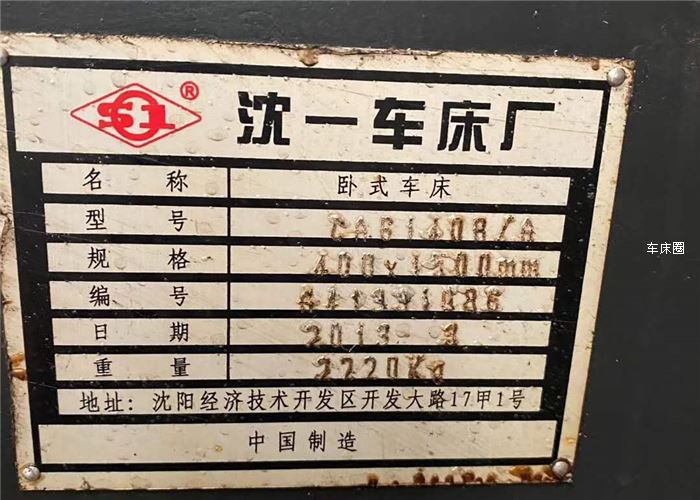 SYL®
沈一车床厂
名 称 卧式车床
型 号 CA6140B/A
规 格 400x1500mm
编 号
日 期 2013 8
重 量 2220Kg
地址: 沈阳经济技术开发区开发大路17甲1号
中国制造
车床圈